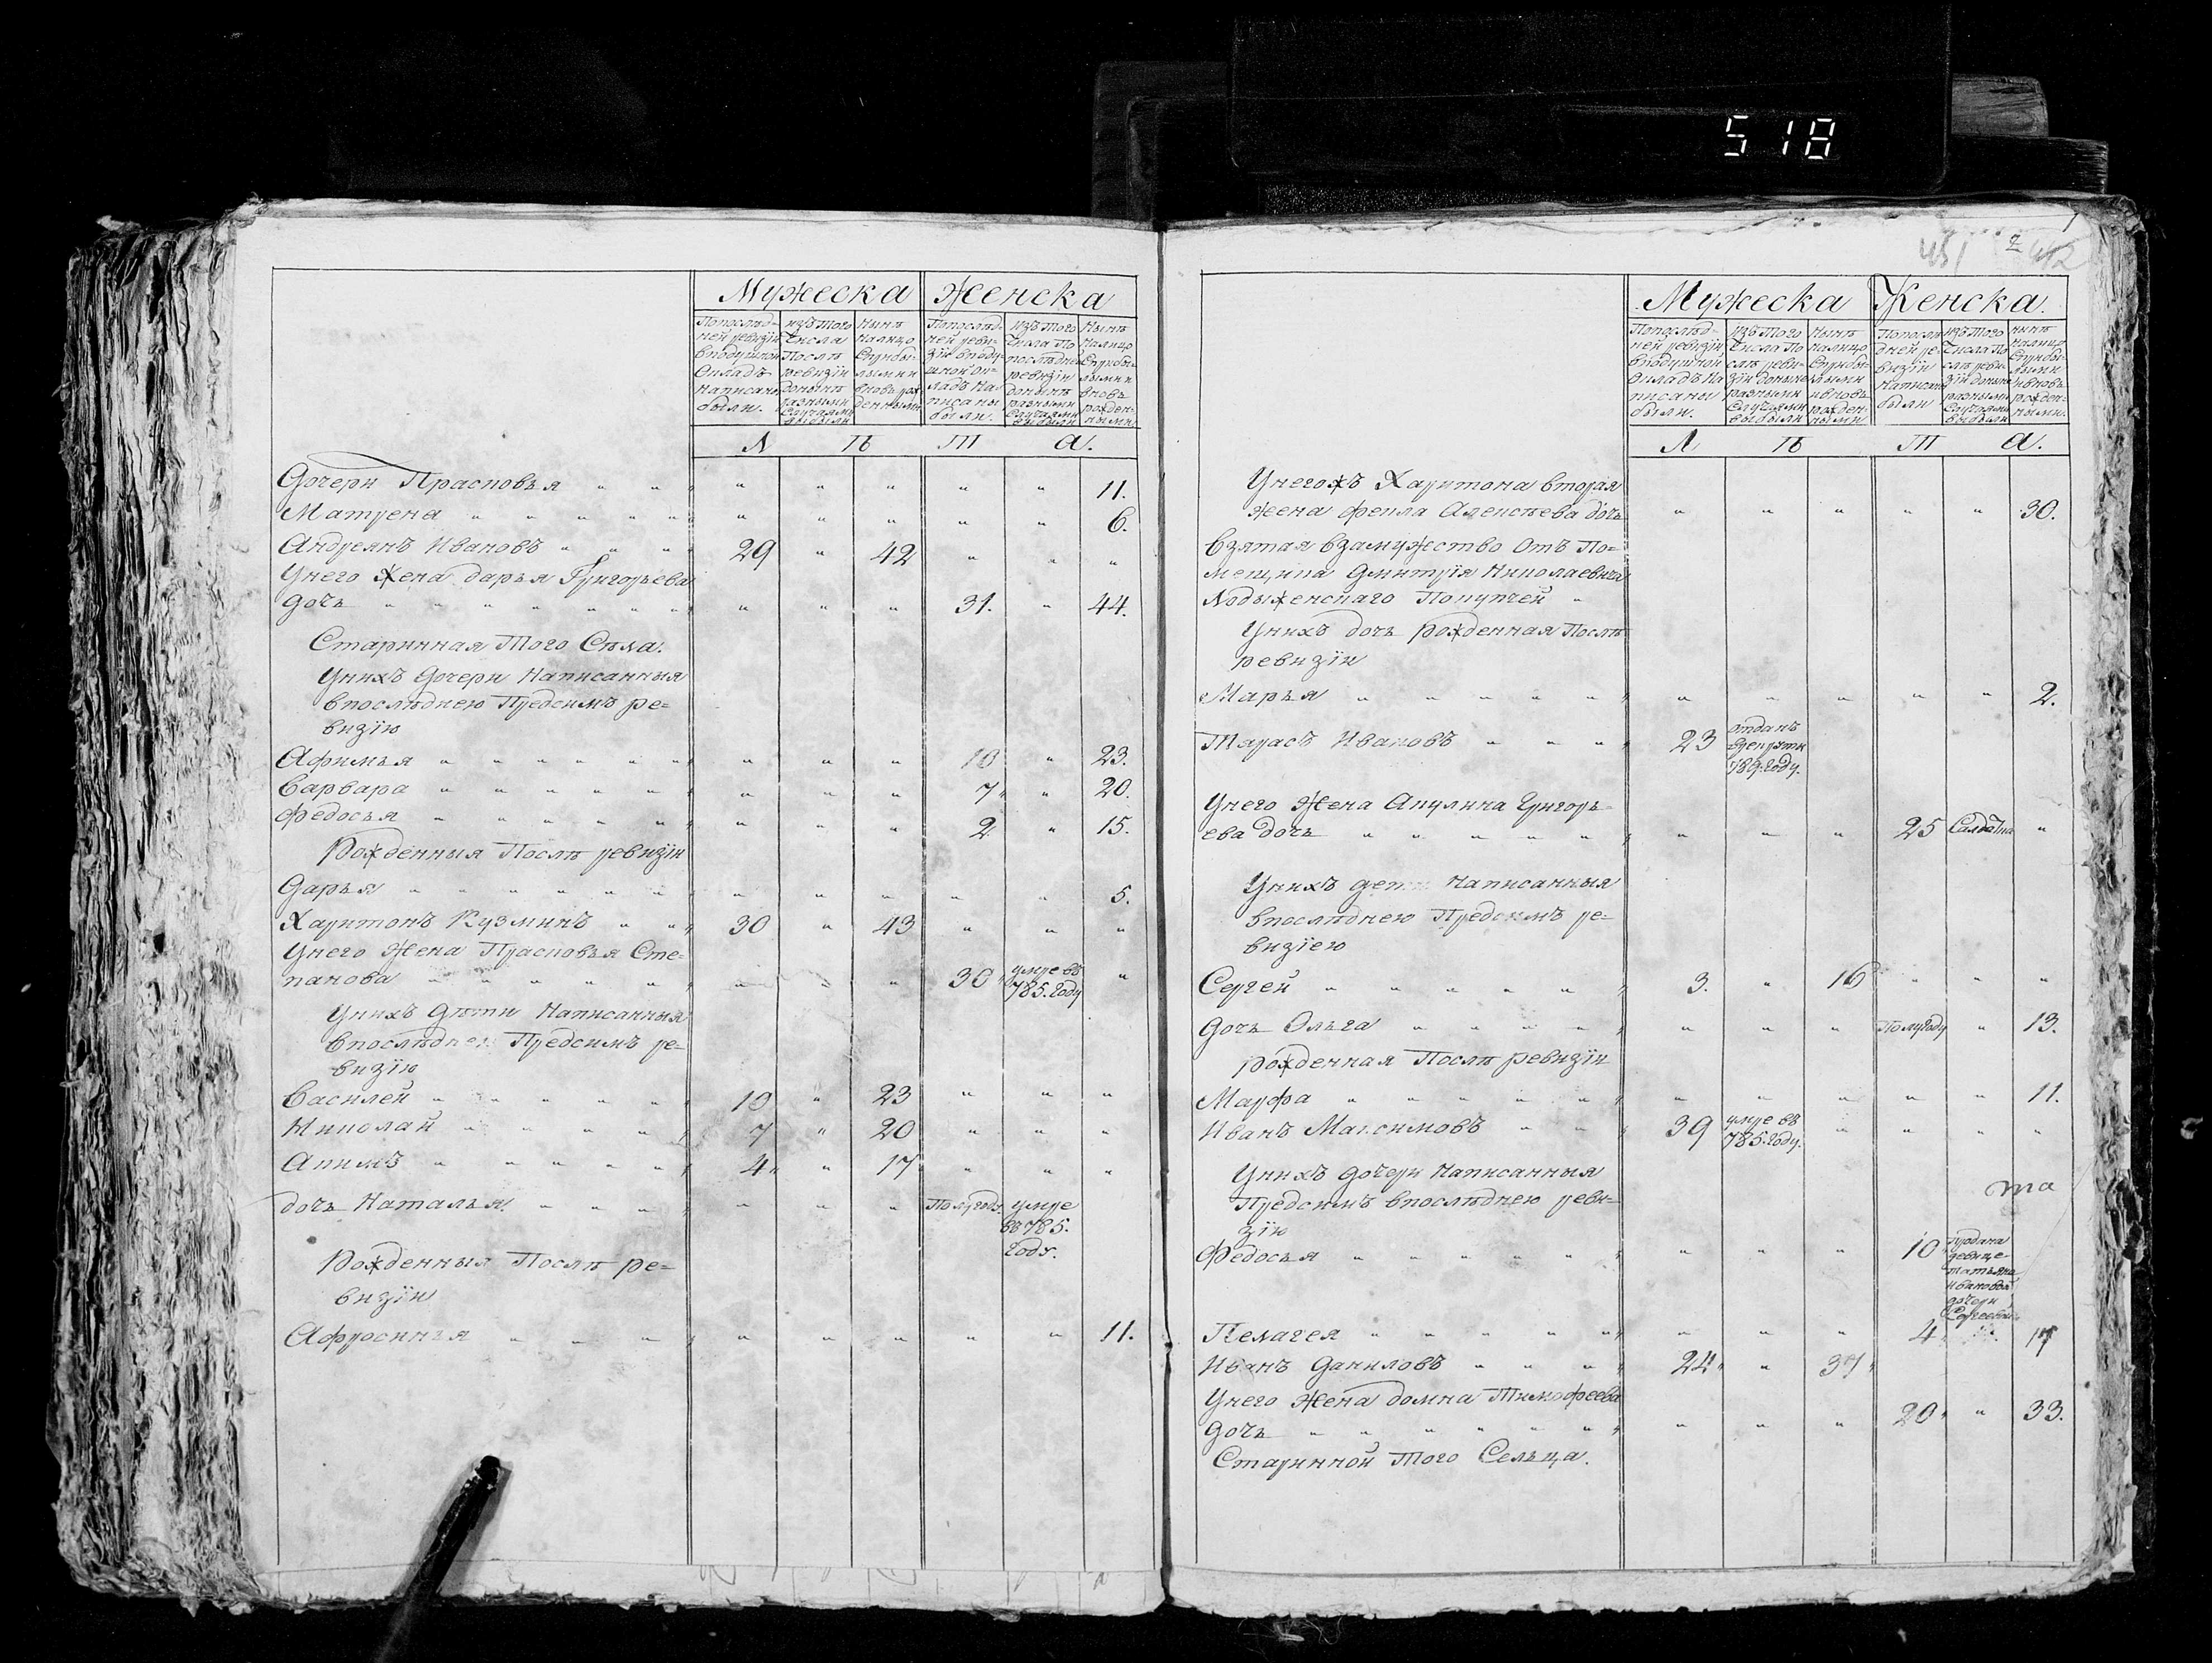 518
Мужеска Женска
Попослѣд=
ней ревизіи
вподушной
Окладъ
написаны
были.
изъ того
Числа
Послѣ
ревизіи
донынѣ
разными
Случаями
выбыли
Нынѣ
Налицо
Сприбы-
лыми и
вновь рож
денными
Попослѣд-
ней реви=
зіи вподу-
шной ок-
ладъ на
писаны
были.
изъ того
Числа По
послѣдней
ревизіи
донынѣ
разными
Случаями
выбыли
Нынѣ
Налицо
Сприбы-
лыми и
вновь
рожден=
ными
Л ѣ т а.
Дочери Прасковья " " " " " " " 11.
Матрена " " " " " " 6.
Андреянъ Ивановъ " " " 29 " 42 " " "
Унего Жена дарья Григорьева
дочь " " " " " 31. " 44.
Старинная Того Села.
Унихъ Дочери Написанныя
впослѣднею Предсимъ ре=
визію
Афимья " " " " " 10 " 23.
Варвара " " " " " 7 " 20.
Федосья " " " " " 2 " 15.
Рожденныя Послѣ ревизіи
Дарья " " " " " " 5.
Харитонъ Кузминъ " " 30 " 43 " " "
Унего Жена Прасковья Сте=
панова " " " " " 30 умре въ
785. Году "
Унихъ Дѣти Написанныя
впослѣднею Предсимъ ре=
визію
Василей " " " " 10 " 23 " " "
Николай " " " " 7 " 20 " " "
Акимъ " " " " 4 " 17 " " "
дочь Наталья " " " " " Полугоду. умре
въ 785.
Году.
Рожденныя Послѣ ре=
визіи
Афросинья " " " " " " 11.
451 2
Мужеска Женска.
Попослѣд=
ней ревизіи
вподушной
Окладъ На
писаны
были.
изъ того
Числа По
слѣ реви=
зіи донынѣ
разными
Случаями
выбыли
Нынѣ
Налицо
Сприбы=
лыми
ивновь
рожден=
ными
Попослѣ
дней ре=
визіи
Написаны
были
изъ того
Числа По
слѣ реви=
зіи донынѣ
разными
Случаями
выбыли
нынѣ
налицо
Сприбы=
лыми
ивновь
рожден=
ными.
Л ѣ т а.
Унегожъ Харитона вторая
Жена фекла Алексѣева дочь " " " " " 30.
Взятая взамужество Отъ По=
мещика Дмитрія Николаевича
Лодыженскаго Покупчей "
Унихъ дочь Рожденная Послѣ
ревизіи
Марья " " " " " " 2.
Тарасъ Ивановъ " " " 23 отданъ
врекруты
789. Году.
Унего Жена Акулина Григорь=
ева дочь " " " " " 25 Салдатка "
Унихъ дети Написанныя
впослѣднею Предсимъ ре=
визіею
Сергей " " " " 3. " 16 " " "
Дочь Ольга " " " " " Полугоду " 13.
Рожденная Послѣ ревизіи
Марфа " " " " " " 11.
Иванъ Максимовъ " " 39 умре въ
785. Году. " " " "
Унихъ Дочери Написанныя
Предсимъ впослѣднею реви=
зіи
та
Федосья " " " " " 10 продана
девице
татьяне
Ивановой
дочери
Сергеевой
Пелагея " " " " " 4 " 17
Иванъ Даниловъ " " " 24 " 37
Унего Жена домна Тимофеева
дочь " " " " " 20 " 33.
Старинной Того Сельца.